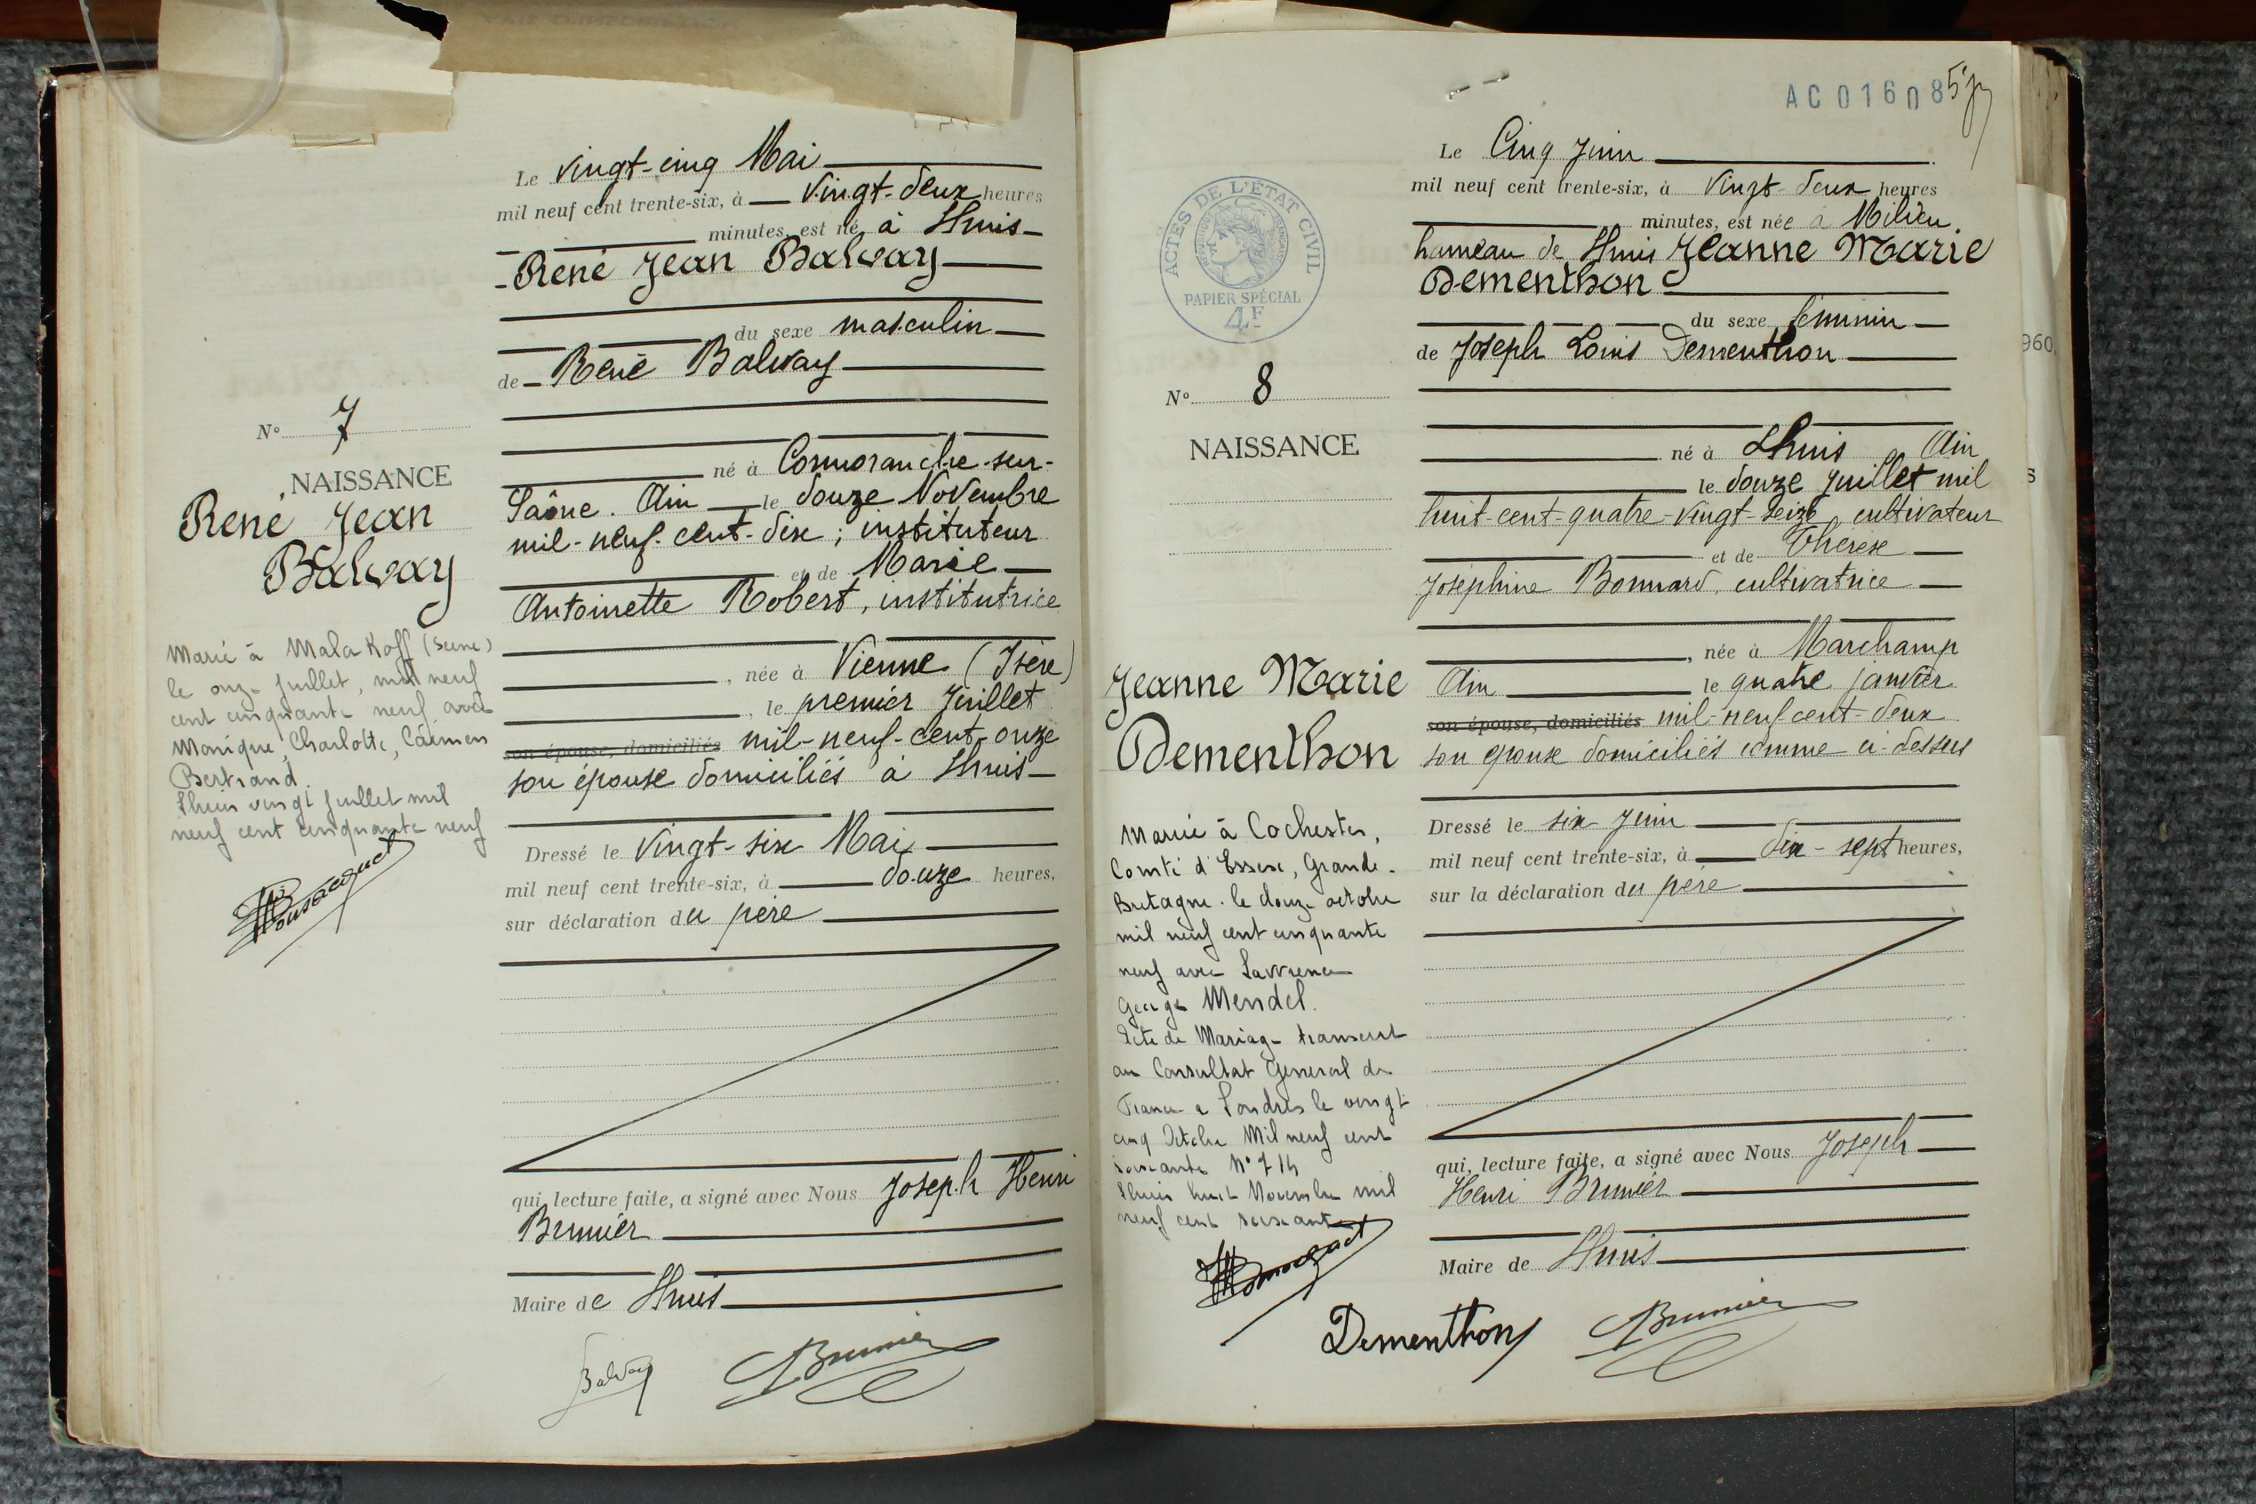 N° 7
NAISSANCE
René Jean
Balvay
Marié à Malakoff (Seine)
le onze juillet, mil neuf
cent cinquante neuf avec
Monique, Charlotte, Carmen
Bertrand.
Lhuis vingt juillet mil
neuf cent cinquante neuf
Le vingt-cinq Mai
mil neuf cent trente-six, à vingt-deux heures
minutes, est né à Lhuis
René Jean Balvay
du sexe masculin
de René Balvay
né à Cormoranche-sur-
Saône. Ain le douze Novembre
mil-neuf-cent-dix ; instituteur
et de Marie
Antoinette Robert, institutrice
, née à Vienne (Isère)
, le premier Juillet
son épouse, domiciliés mil-neuf-cent-onze
son épouse domiciliés à Lhuis
Dressé le vingt-six Mai
mil neuf cent trente-six, à douze heures,
sur déclaration du père
qui, lecture faite, a signé avec Nous Joseph Henri
Brunier
Maire de Lhuis
Balvay Brunier
AC01608 57
ACTES DE L'ÉTAT CIVIL
PAPIER SPÉCIAL
4F
N° 8
NAISSANCE
Jeanne Marie
Dementhon
Mariée à Cochester,
Comté d'Essex, Grande-
Bretagne. le douze octobre
mil neuf cent cinquante
neuf avec Lawrence
George Mendel.
Acte de Mariage transcrit
au Consultat General de
France a Londres le vingt
cinq Octobre Mil neuf cent
soixante N° 714
Lhuis huit Novembre mil
neuf cent soixante
Le Cinq Juin
mil neuf cent trente-six, à vingt-deux heures
minutes, est née à Milieu
hameau de Lhuis Jeanne Marie
Dementhon
du sexe féminin
de Joseph Louis Dementhon
né à Lhuis Ain
le douze Juillet mil
huit-cent-quatre-vingt-seize cultivateur
et de Thérèse
Joséphine Bonnard, cultivatrice
, née à Marchamp
Ain le quatre janvier
son épouse, domiciliés mil-neuf cent-deux
son épouse domiciliés comme ci-dessus
Dressé le six Juin
mil neuf cent trente-six, à dix-sept heures,
sur la déclaration du père
qui, lecture faite, a signé avec Nous Joseph
Henri Brunier
Maire de Lhuis
Dementhon Brunier
960
s